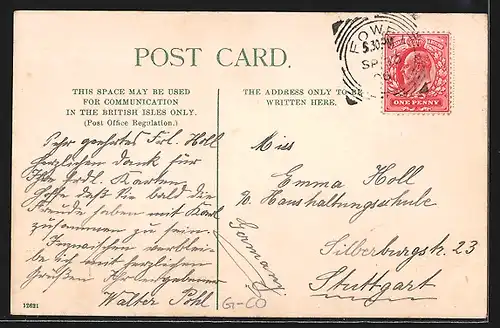 POST CARD.
FOWEY
5.30 PM
SP
ONE PENNY
THIS SPACE MAY BE USED
FOR COMMUNICATION
IN THE BRITISH ISLES ONLY.
(Post Office Regulation.)
Sehr geehrtes Frl. Holl
Herzlichen Dank für
Ihre frdl. Karten.
Hoffe daß Sie bald die
Freude haben mit Karl
zusammen zu sein.
Inzwischen verbleibe
ich mit herzlichen
Grüßen Ihr ergebener
Walter Pohl
12631
THE ADDRESS ONLY TO BE
WRITTEN HERE.
Miss
Emma Holl
Haushaltungsschule
Silberburgstr. 23
Stuttgart
Germany
G-CO